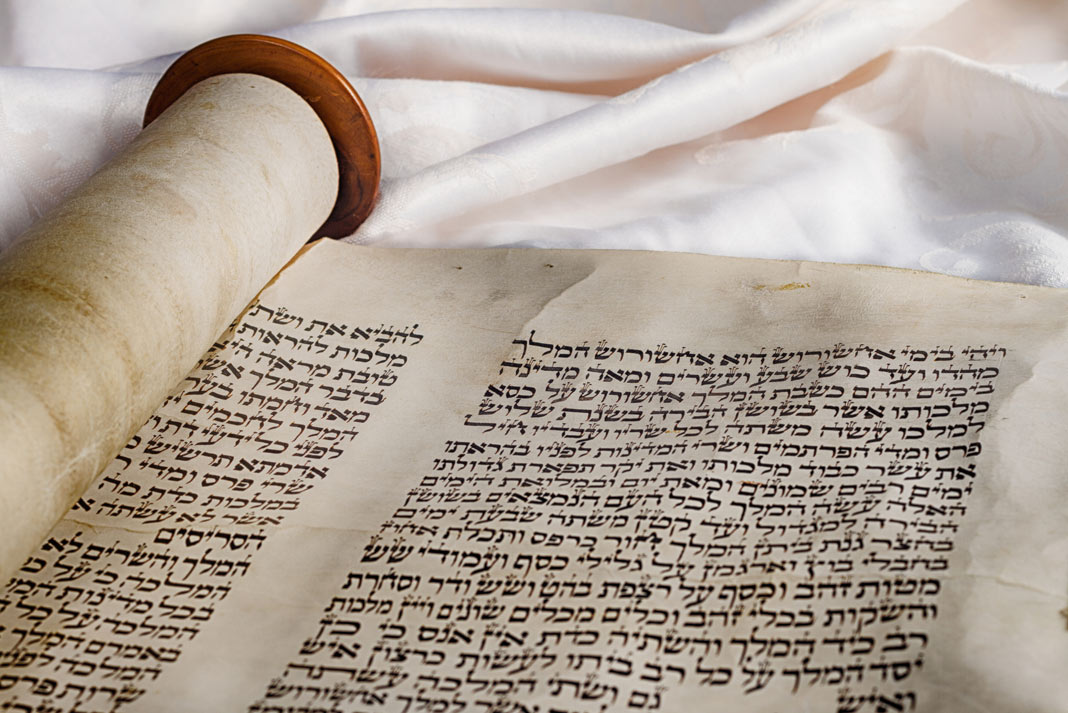 ויהי בימי אחשורוש הוא אחשורוש המלך
מהדו ועד כוש שבע ועשרים ומאה מדינה
בימים ההם כשבת המלך אחשורוש על כסא
מלכותו אשר בשושן הבירה בשנת שלוש
למלכו עשה משתה לכל שריו ועבדיו חיל
פרס ומדי הפרתמים ושרי המדינות לפניו בהראתו
את עשר כבוד מלכותו ואת יקר תפארת גדולתו
ימים רבים שמונים ומאת יום ובמלואת הימים
האלה עשה המלך לכל העם הנמצאים בשושן
הבירה למגדול ועד קטן משתה שבעת ימים
בחצר גנת ביתן המלך חור כרפס ותכלת אחוז
בחבלי בוץ וארגמן על גלילי כסף ועמודי שש
מטות זהב וכסף על רצפת בהט ושש ודר וסחרת
והשקות בכלי זהב וכלים מכלים שונים ויין מלכות
רב כיד המלך והשתיה כדת אין אנס כי כן
יסד המלך על כל רב ביתו לעשות כרצון איש
ואיש גם ושתי המלכה עשתה
אשר למלך אחשורוש
להביא את ושתי
מלכות להראות
טובת מראה היא
בדבר המלך אשר
מאד וחמתו בערה
המלך לחכמים
לפני כל ידעי דת
אדמתא תרשיש
שרי פרס ומדי
במלכות כדת מה
אשר לא עשתה
הסריסים
המלך והשרים לא
המלכה כי על כל
בכל מדינות המלך
המלכה על כל
באמרם המלך
המלכה לפניו
שרות פרס